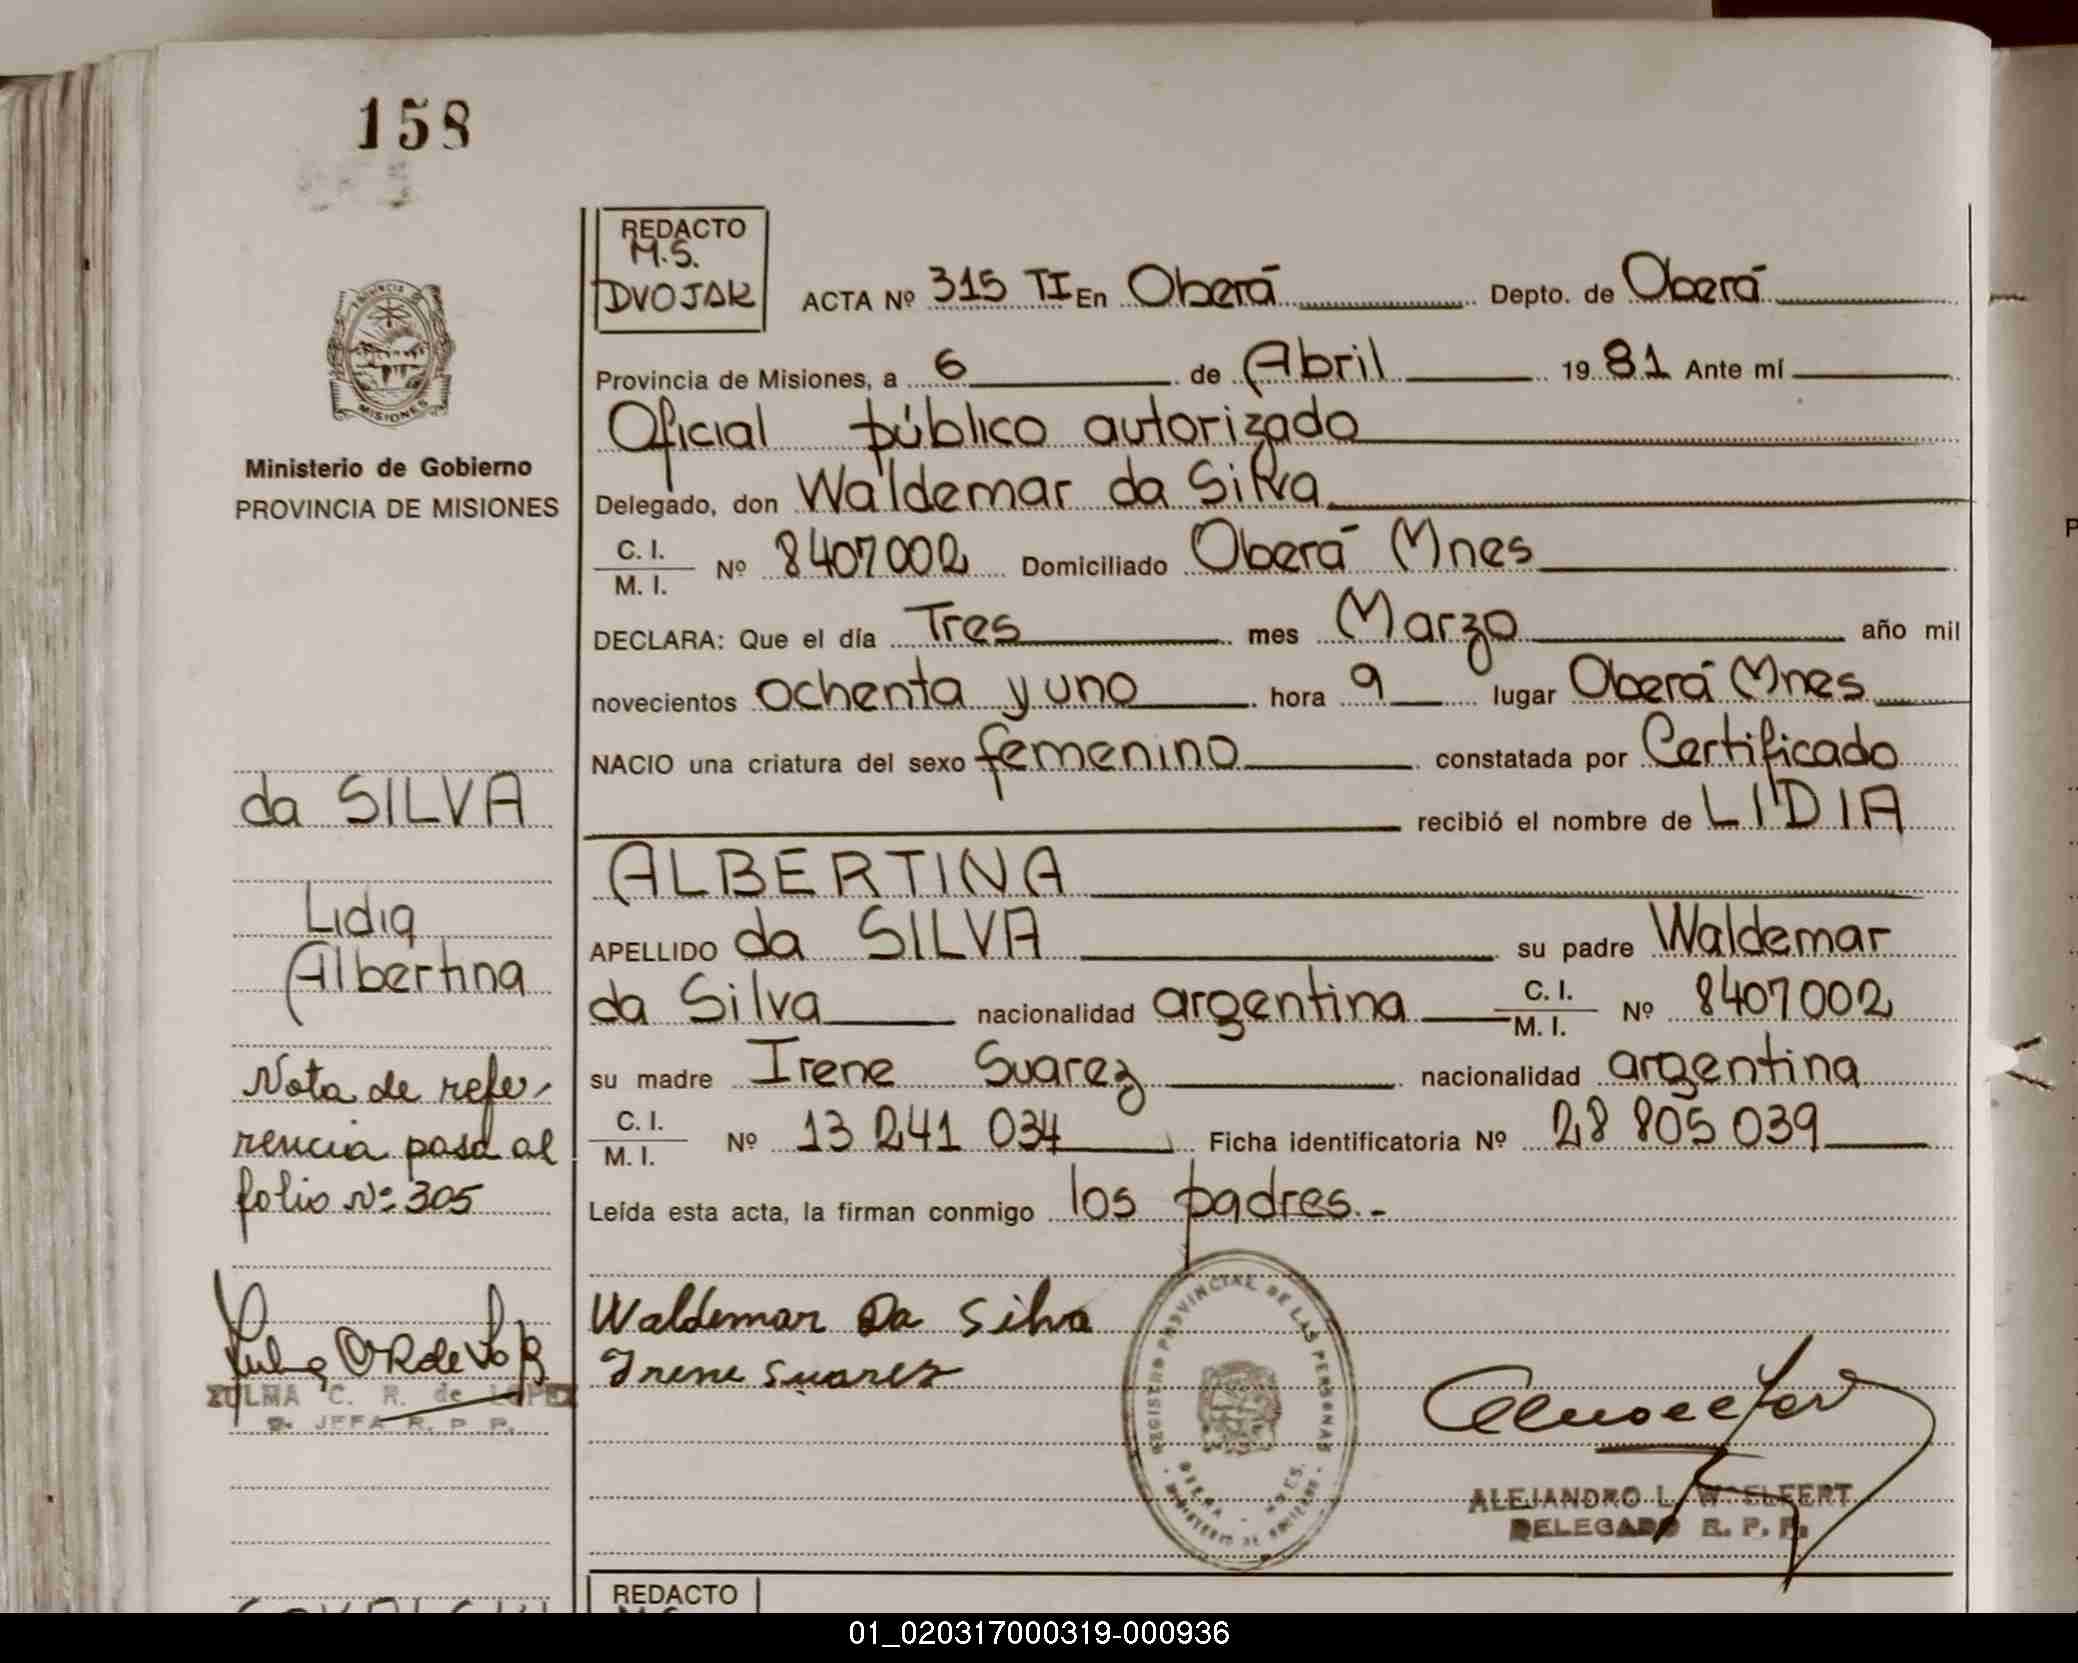 158
REDACTO
M.S.
DVOJAK
ACTA Nº 315 TI En Oberá Depto. de Oberá
Provincia de Misiones, a 6 de Abril 1981 Ante mí
Oficial público autorizado
Delegado, don Waldemar da Silva
C. I.
M. I. Nº 8407002 Domiciliado Oberá Mnes
DECLARA: Que el día Tres mes Marzo año mil
novecientos ochenta y uno hora 9 lugar Oberá Mnes
NACIO una criatura del sexo femenino constatada por Certificado
recibió el nombre de LIDIA
ALBERTINA
APELLIDO da SILVA su padre Waldemar
da Silva nacionalidad argentina C. I. M. I. Nº 8407002
su madre Irene Suarez nacionalidad argentina
C. I.
M. I. Nº 13 241 034 Ficha identificatoria Nº 28 805 039
Leída esta acta, la firman conmigo los padres.-
Waldemar Da Silva
Irene Suarez
REGISTRO PROVINCIAL DE LAS PERSONAS
OBERA - MNES.
MINISTERIO DE GOBIERNO
ALEJANDRO L. W. SEIFERT
DELEGADO R. P. P.
MISIONES
Ministerio de Gobierno
PROVINCIA DE MISIONES
da SILVA
Lidia
Albertina
Nota de refe-
rencia pasa al
folio Nº 305
ZULMA C. R. de LOPEZ
JEFA R. P. P.
REDACTO
01_020317000319-000936